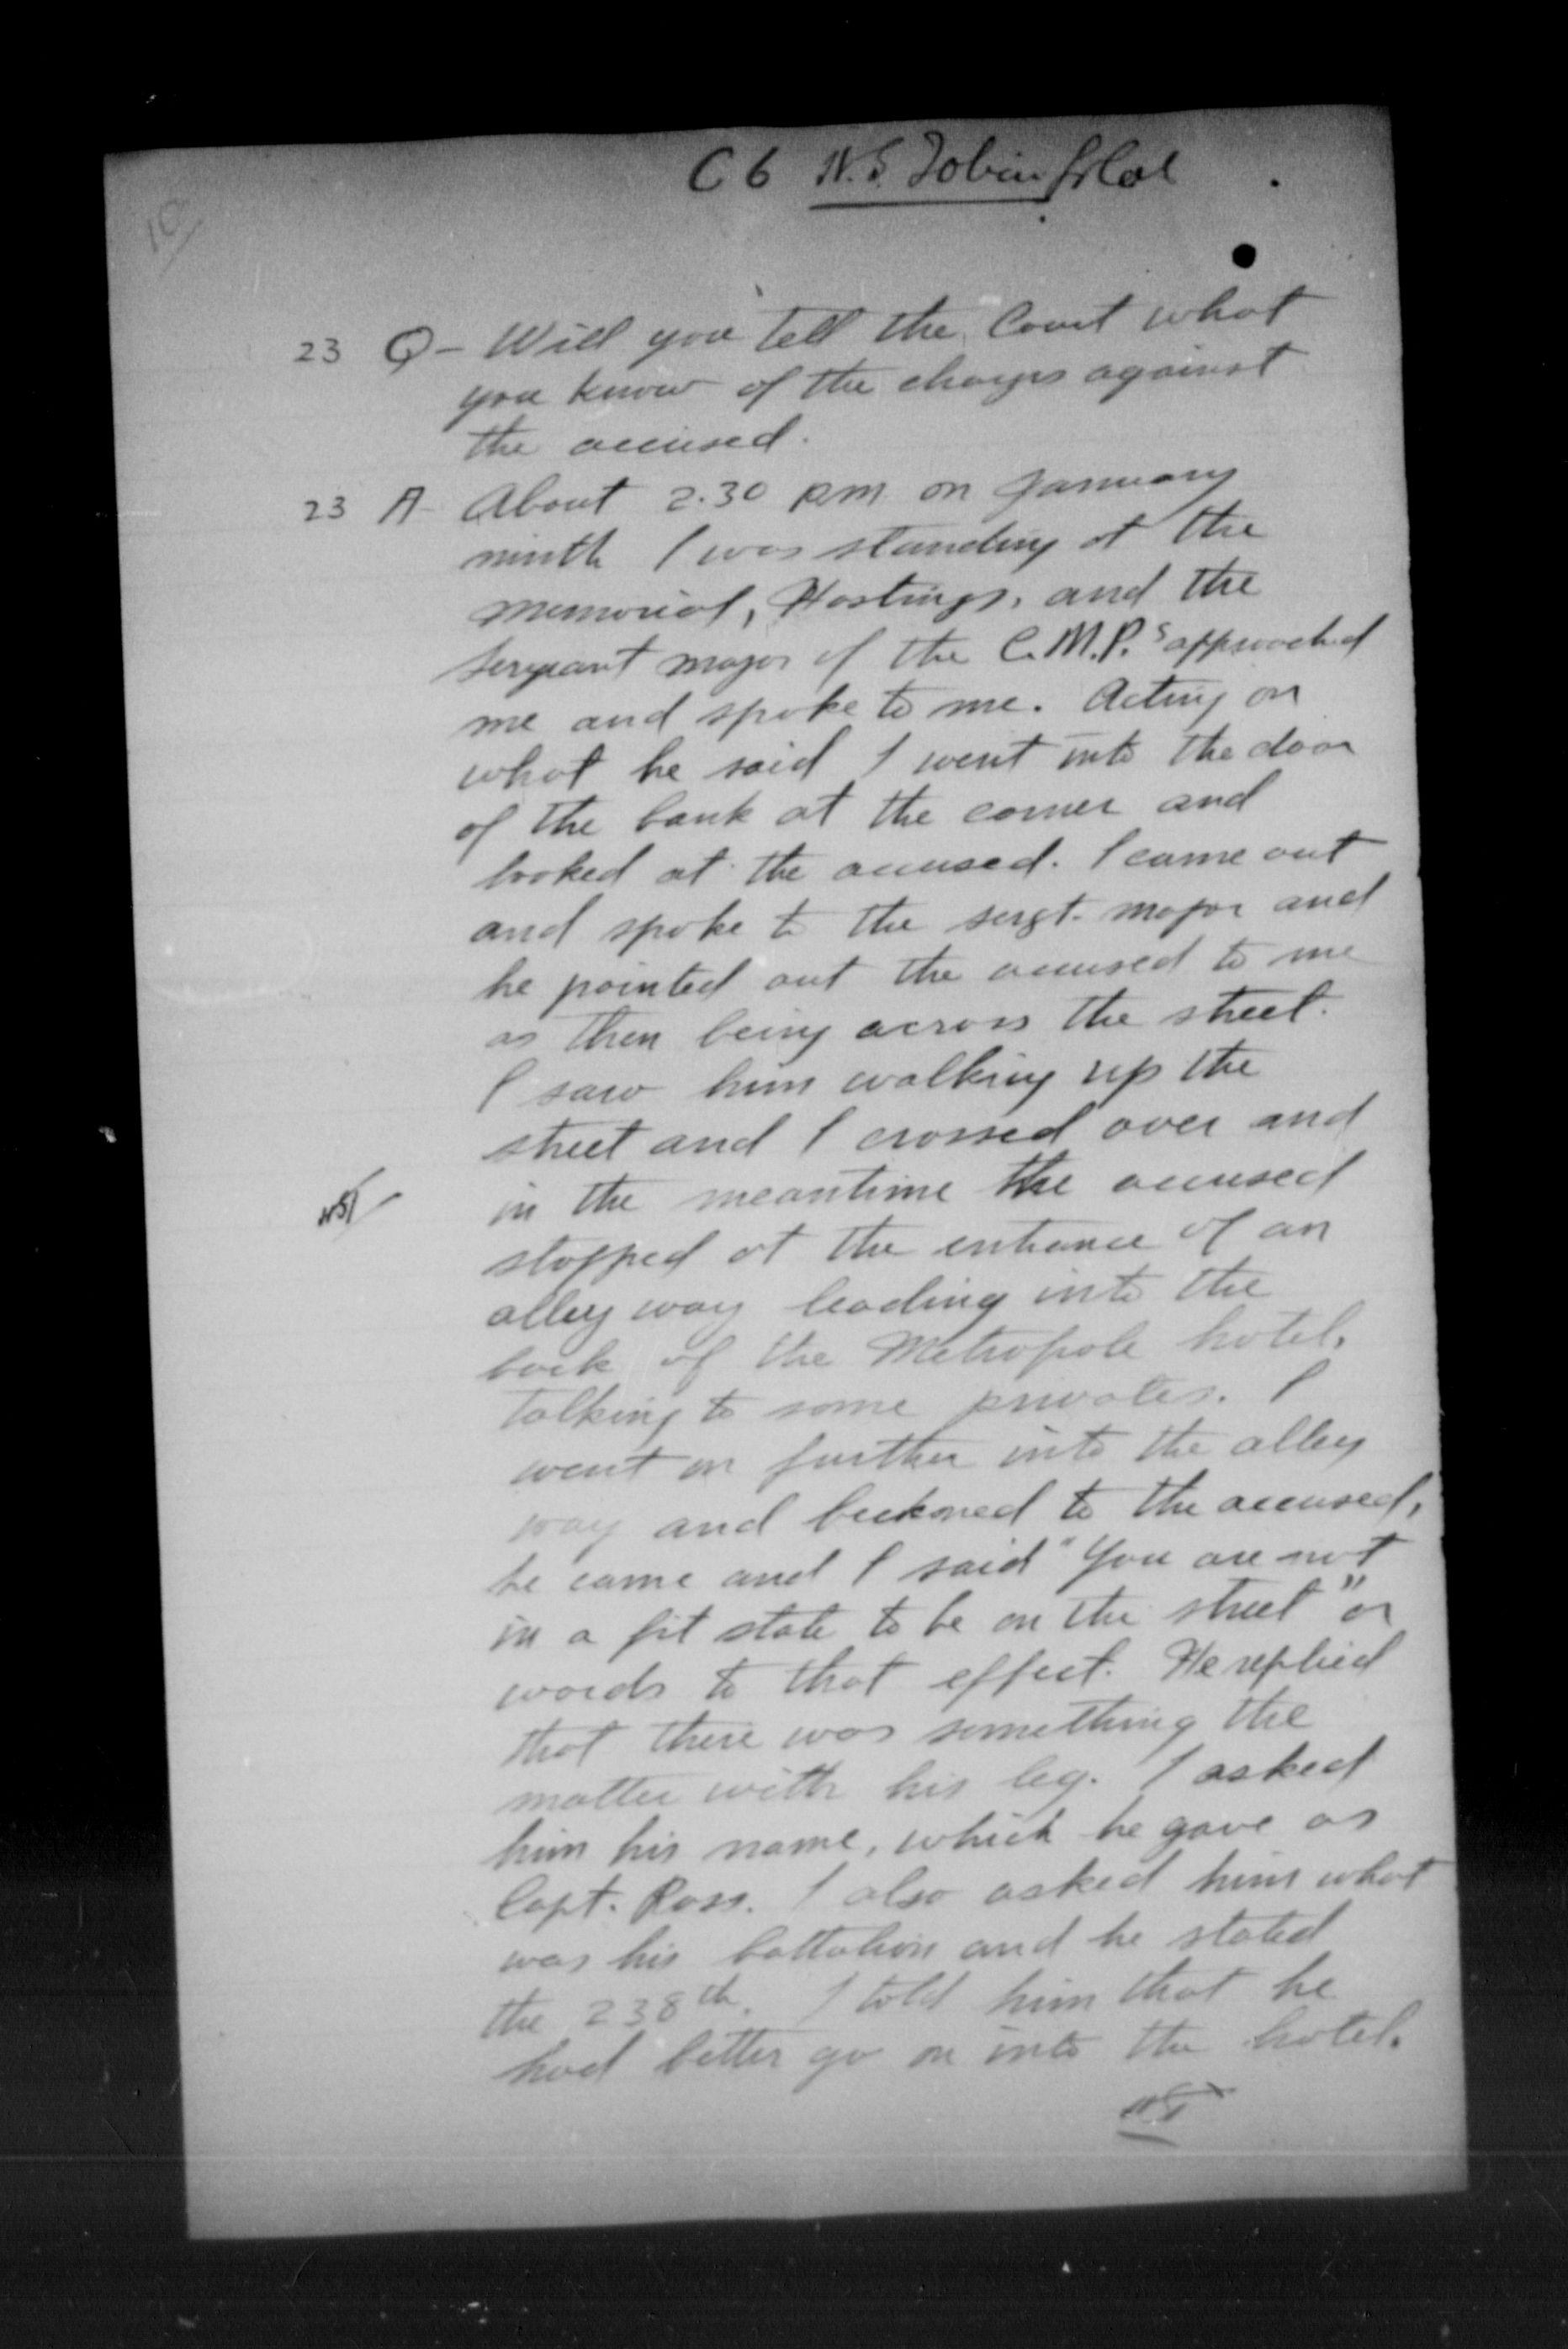 10
C 6 H.S. Tobin Lt Col
23 Q - Will you tell the Court what
you know of the charges against
the accused.
23 A - About 2.30 pm on January
ninth I was standing at the
memorial, Hastings, and the
sergeant major of the C.M.P.s approached
me and spoke to me. Acting on
what he said I went into the door
of the bank at the corner and
looked at the accused. I came out
and spoke to the sergt. major and
he pointed out the accused to me
as then being across the street.
I saw him walking up the
street and I crossed over and
in the meantime the accused
stopped at the entrance of an
alley way leading into the
back of the Metropole hotel.
talking to some privates. I
went on further into the alley
way and beckoned to the accused,
he came and I said "You are not
in a fit state to be on the street" or
words to that effect. He replied
that there was something the
matter with his leg. I asked
him his name, which he gave as
Capt. Ross. I also asked him what
was his battalion and he stated
the 238th. I told him that he
had better go on into the hotel.